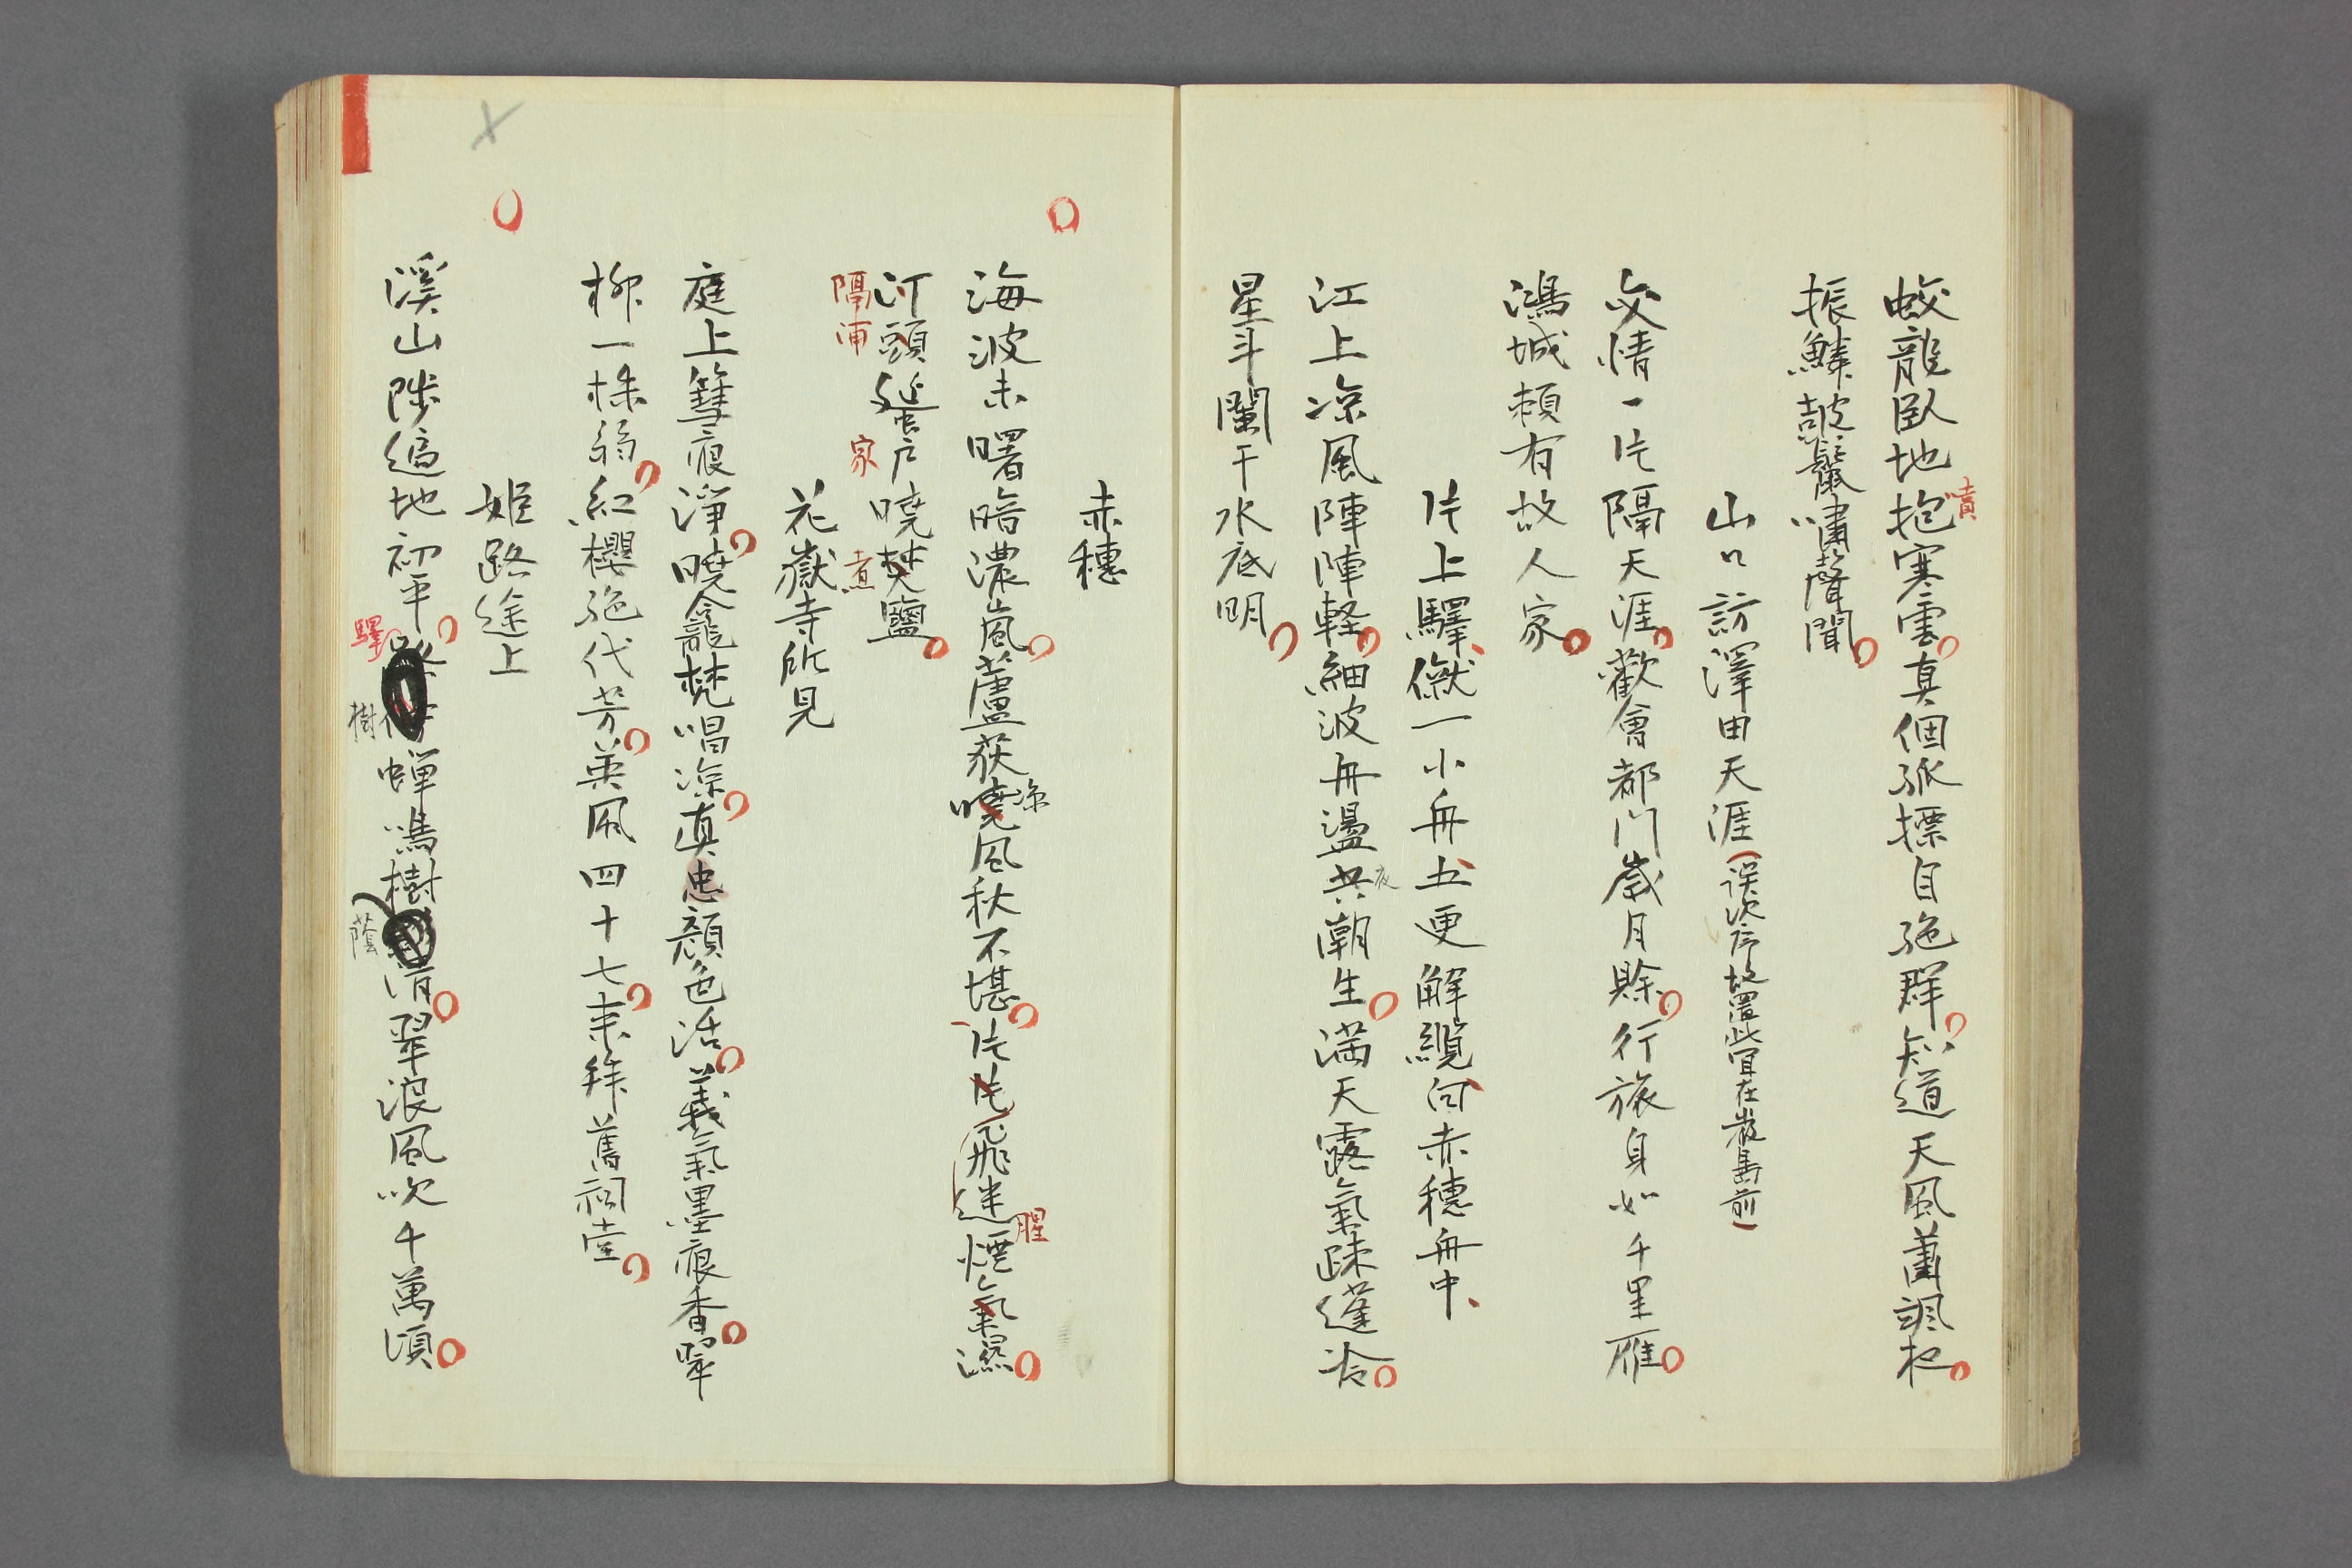 蛟龍臥地抱寒雲真個孤標自絶群知道天風蕭颯夜
噴
振鱗皷鬣嘯聲聞
山口訪澤田天涯(誤次序故置此宜在嚴島前)
交情一片隔天涯歡會都門歳月賒行旅身如千里雁
鴻城頼有故人家
片上驛僦一小舟五更解纜向赤穗舟中
江上凉風陣陣軽細波舟盪共潮生満天露氣疎蓬冷
夜
星斗闌干水底明
赤穗
海波未曙暗濃嵐蘆荻曉風秋不堪片片飛迷煙氣濕
凉
腥
汀頭蜑戶曉焚鹽
隔浦
家
煮
花嶽寺所見
庭上篲痕淨曉龕梵唱凉真忠顔色活義氣墨痕香翠
柳一株弱紅櫻絶代芳英風四十七來拜舊祠堂
姫路途上
溪山陟遍地初平蟬鳴樹清翠浪風吹千萬頃
驛
樹
蔭